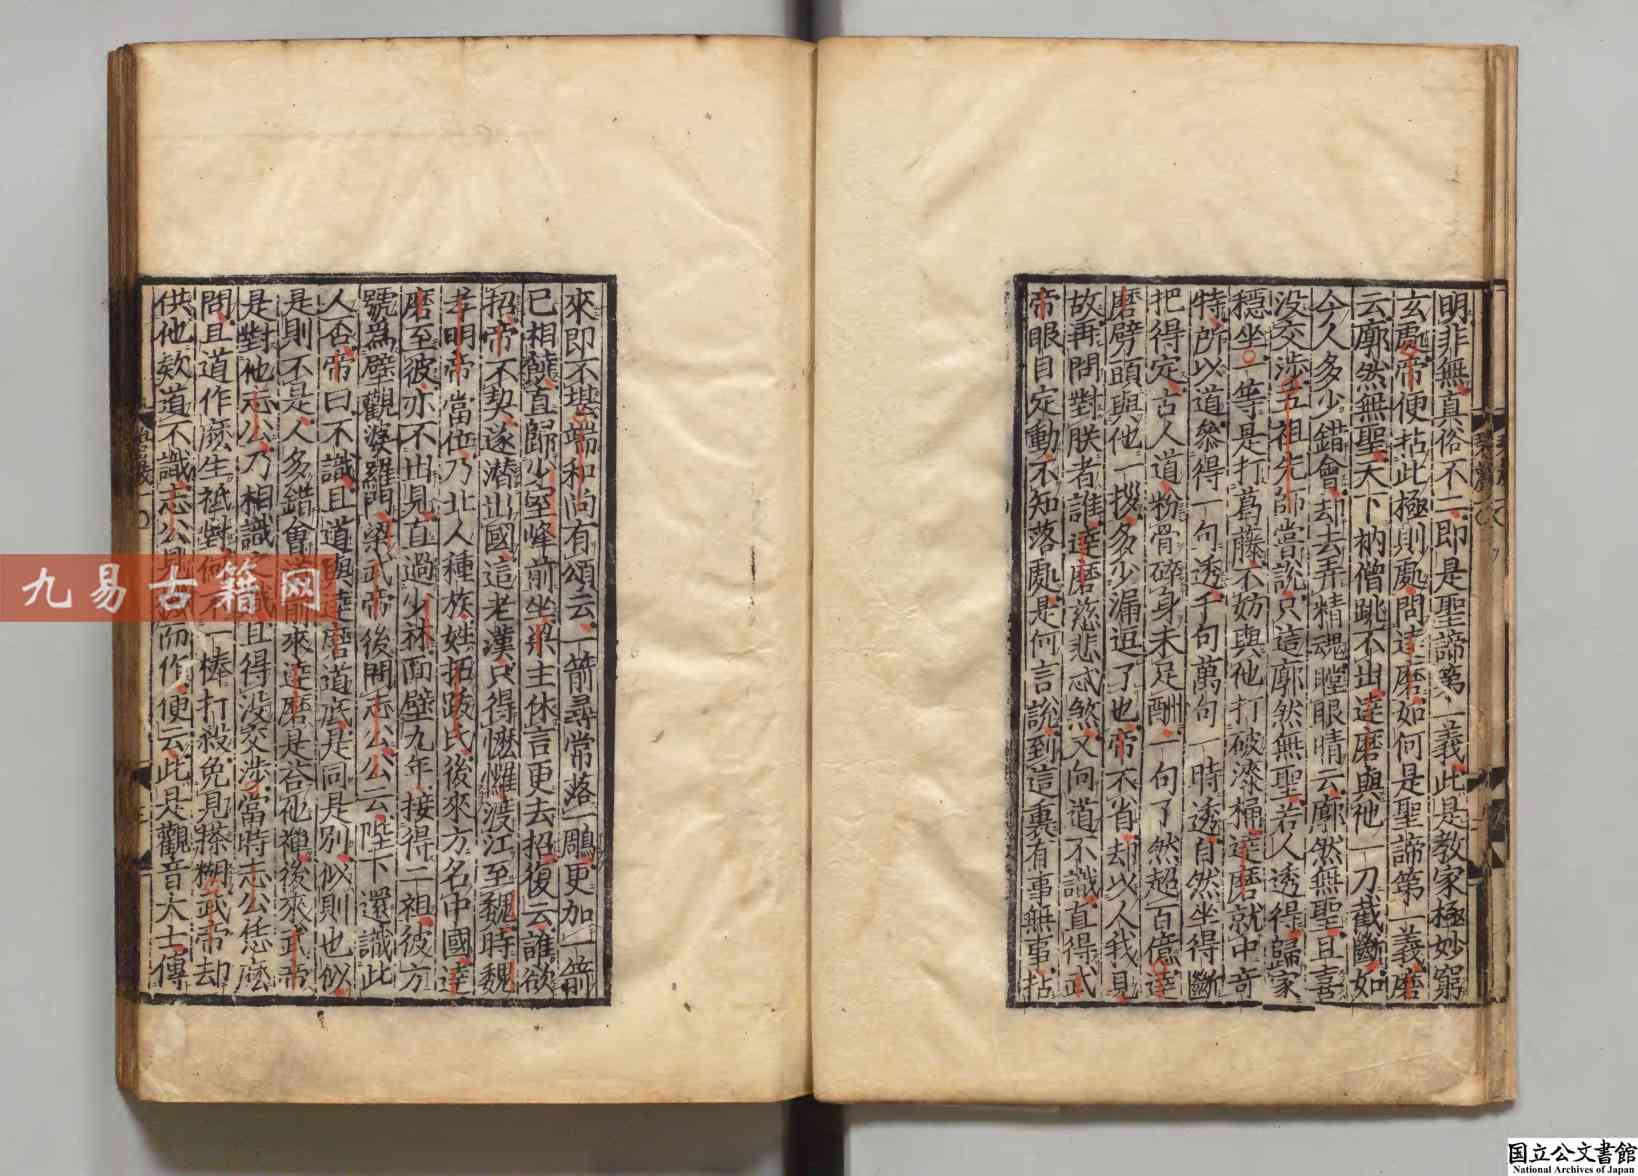 明非無真俗不二即是聖諦第一義此是教家極妙窮
玄處帝便拈此極則處問達磨如何是聖諦第一義磨
云廓然無聖天下衲僧跳不出達磨與他一刀截斷如
今人多少錯會却去弄精魂瞠眼睛云廓然無聖且喜
没交涉五祖先師嘗說只這廓然無聖若人透得歸家
穩坐一等是打葛藤不妨與他打破漆桶達磨就中奇
特所以道參得一句透千句萬句一時透自然坐得斷
把得定古人道粉骨碎身未足酬一句了然超百億達
磨劈頭與他一拶多少漏逗了也帝不省却以人我見
故再問對朕者誰達磨慈悲忒煞又向道不識直得武
帝眼目定動不知落處是何言說到這裏有事無事拈
來即不堪端和尚有頌云一箭尋常落一鵰更加一箭
已相饒直歸少室峰前坐梁主休言更去招復云誰欲
招帝不契遂潛出國這老漢只得懡㦬渡江至魏時魏
孝明帝當位乃北人種族姓拓跋氏後來方名中國達
磨至彼亦不出見直過少林面壁九年接得二祖彼方
號為壁觀婆羅門梁武帝後問志公公云陛下還識此
人否帝曰不識且道與達磨道底是同是別似則也似
是則不是人多錯會道前來達磨是答他禪後來武帝
是對他志公乃相識之識且得没交涉當時志公恁麽
問且道作麽生祗對何不一棒打殺免見搽糊武帝却
供他欵道不識志公見機而作便云此是觀音大士傳
九易古籍网
国立公文書館
National Archives of Japan